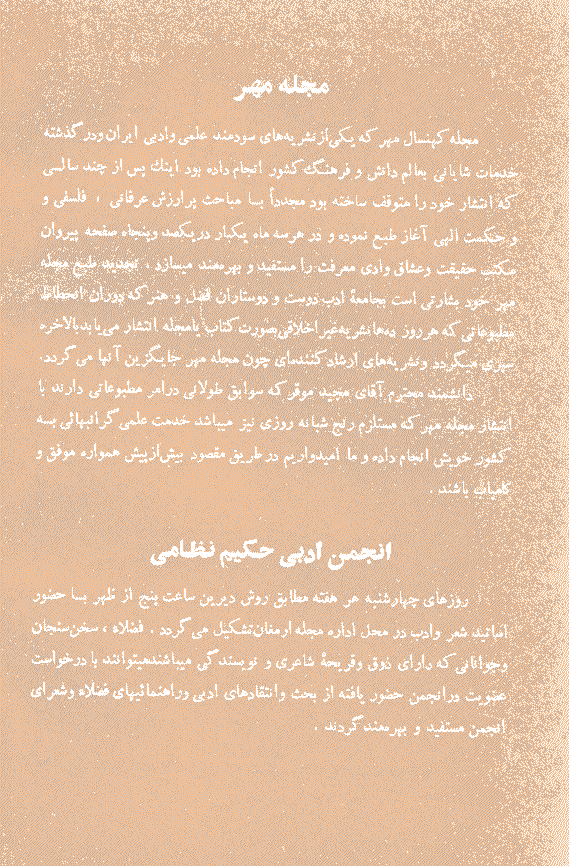 مجله مهر
مجله کهنسال مهر که یکی از نشریه‌های سودمند علمی وادبی ایران ودر گذشته
خدمات شایانی بعالم دانش و فرهنگ کشور انجام داده بود اینك پس از چند سالی
که انتشار خود را متوقف ساخته بود مجدداً بسا مباحث پرارزش عرفانی ، فلسفی و
و حکمت الهی آغاز طبع نموده و در هرسه ماه یکبار در یکصد وپنجاه صفحه پیروان
مکتب حقیقت وعشاق وادی معرفت را مستفید و بهره‌مند میسازد . تجدید طبع مجله
مهر خود بشارتی است بجامعهٔ ادب دوست و دوستاران فضل و هنر که دوران انحطاط
مطبوعاتی که هر روز ده‌ها نشریه غیر اخلاقی بصورت کتاب یا مجله انتشار می‌یابد بالاخره
سپری میگردد ونشریه‌های ارشاد کننده‌ای چون مجله مهر جایگزین آنها می‌گردد.
دانشمند محترم آقای مجید موقر که سوابق طولانی درامر مطبوعاتی دارند با
انتشار مجله مهر که مستلزم رنج شبانه روزی نیز میباشد خدمت علمی گرانبهائی بسه
کشور خویش انجام داده و ما امیدواریم در طریق مقصود بیش‌ازپیش همواره موفق و
کامیاب باشند .
انجمن ادبی حکیم نظامی
روزهای چهارشنبه هر هفته مطابق روش دیرین ساعت پنج از ظهر بسا حضور
اساتید شعر وادب در محل اداره مجله ارمغان تشکیل می گردد . فضلاء ، سخن‌سنجان
وجوانانی که دارای ذوق وقریحهٔ شاعری و نویسندگی میباشند میتوانند با درخواست
عضویت درانجمن حضور یافته از بحث وانتقادهای ادبی وراهنمائیهای فضلاء وشعرای
انجمن مستفید و بهره‌مند گردند .